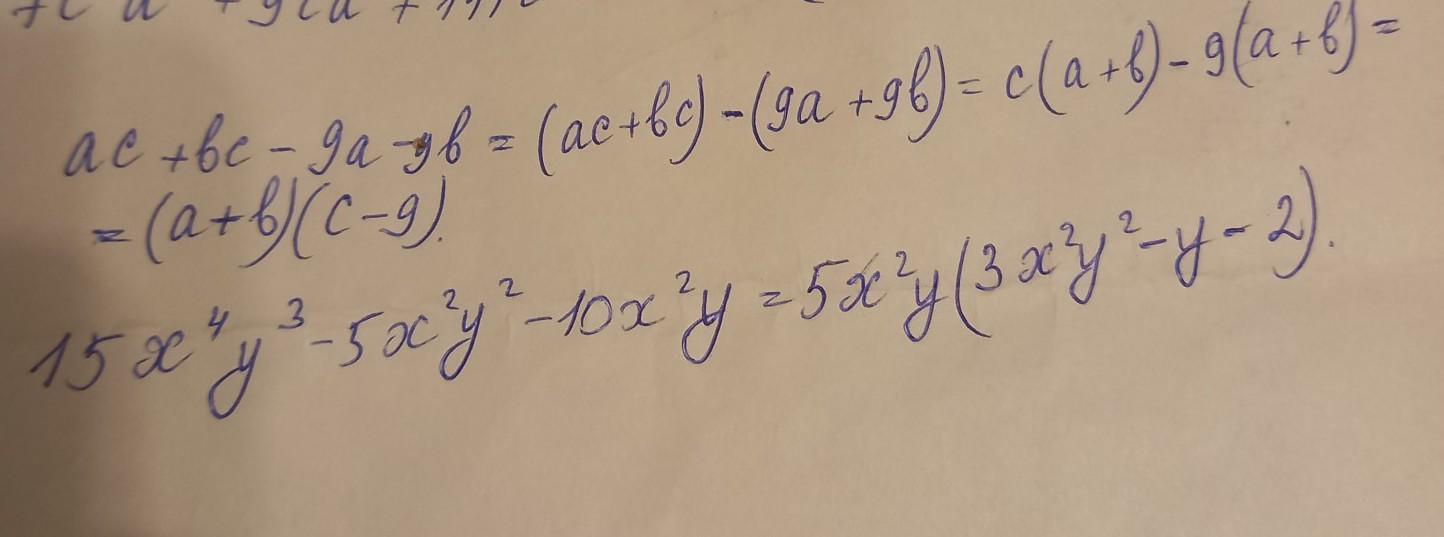 ac + bc - 9a - 9b = (ac + bc) - (9a + 9b) = c(a + b) - 9(a + b) =
= (a + b)(c - 9).
15x⁴y³ - 5x²y² - 10x²y = 5x²y(3x²y² - y - 2).